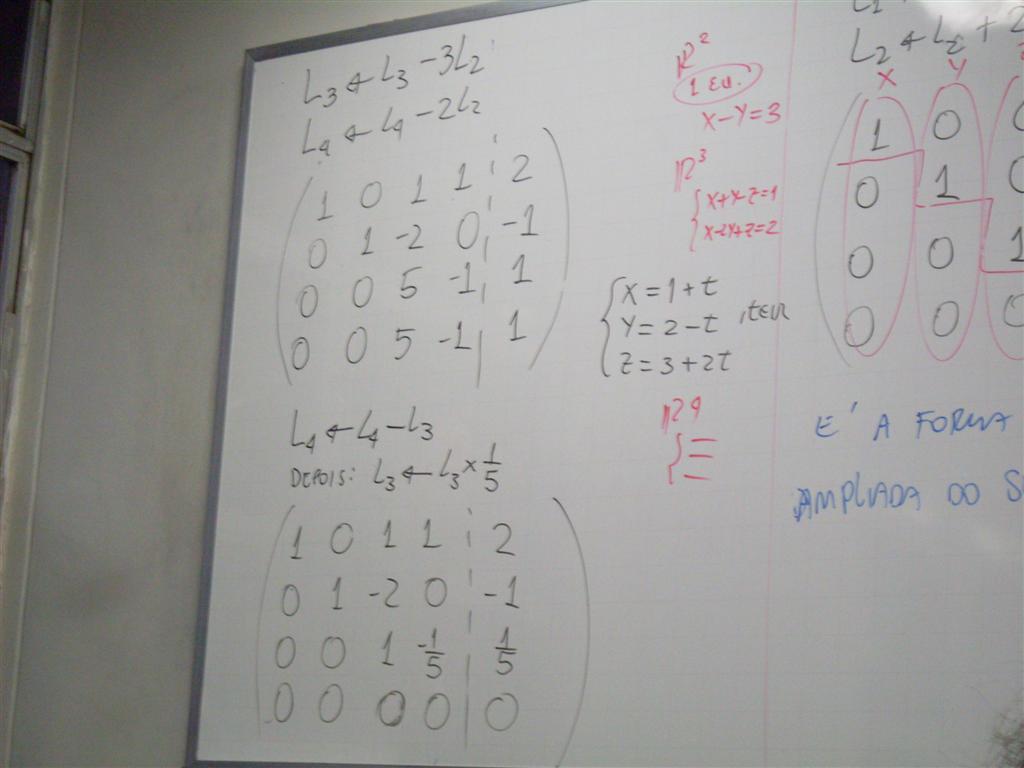 L₃ ← L₃ - 3L₂
L₄ ← L₄ - 2L₂
1 0 1 1 2
0 1 -2 0 -1
0 0 5 -1 1
0 0 5 -1 1
L₄ ← L₄ - L₃
DEPOIS: L₃ ← L₃ × 1/5
1 0 1 1 2
0 1 -2 0 -1
0 0 1 -1/5 1/5
0 0 0 0 0
R²
1 EQ.
X-Y=3
R³
X+Y-Z=1
X-2Y+Z=2
X = 1+t
Y = 2-t , t∈R
Z = 3+2t
R⁴
L₂ ← L₂ + 2
X Y
1 0 0
0 1 0
0 0 1
0 0 0
E' A FORMA
AMPLIADA DO S